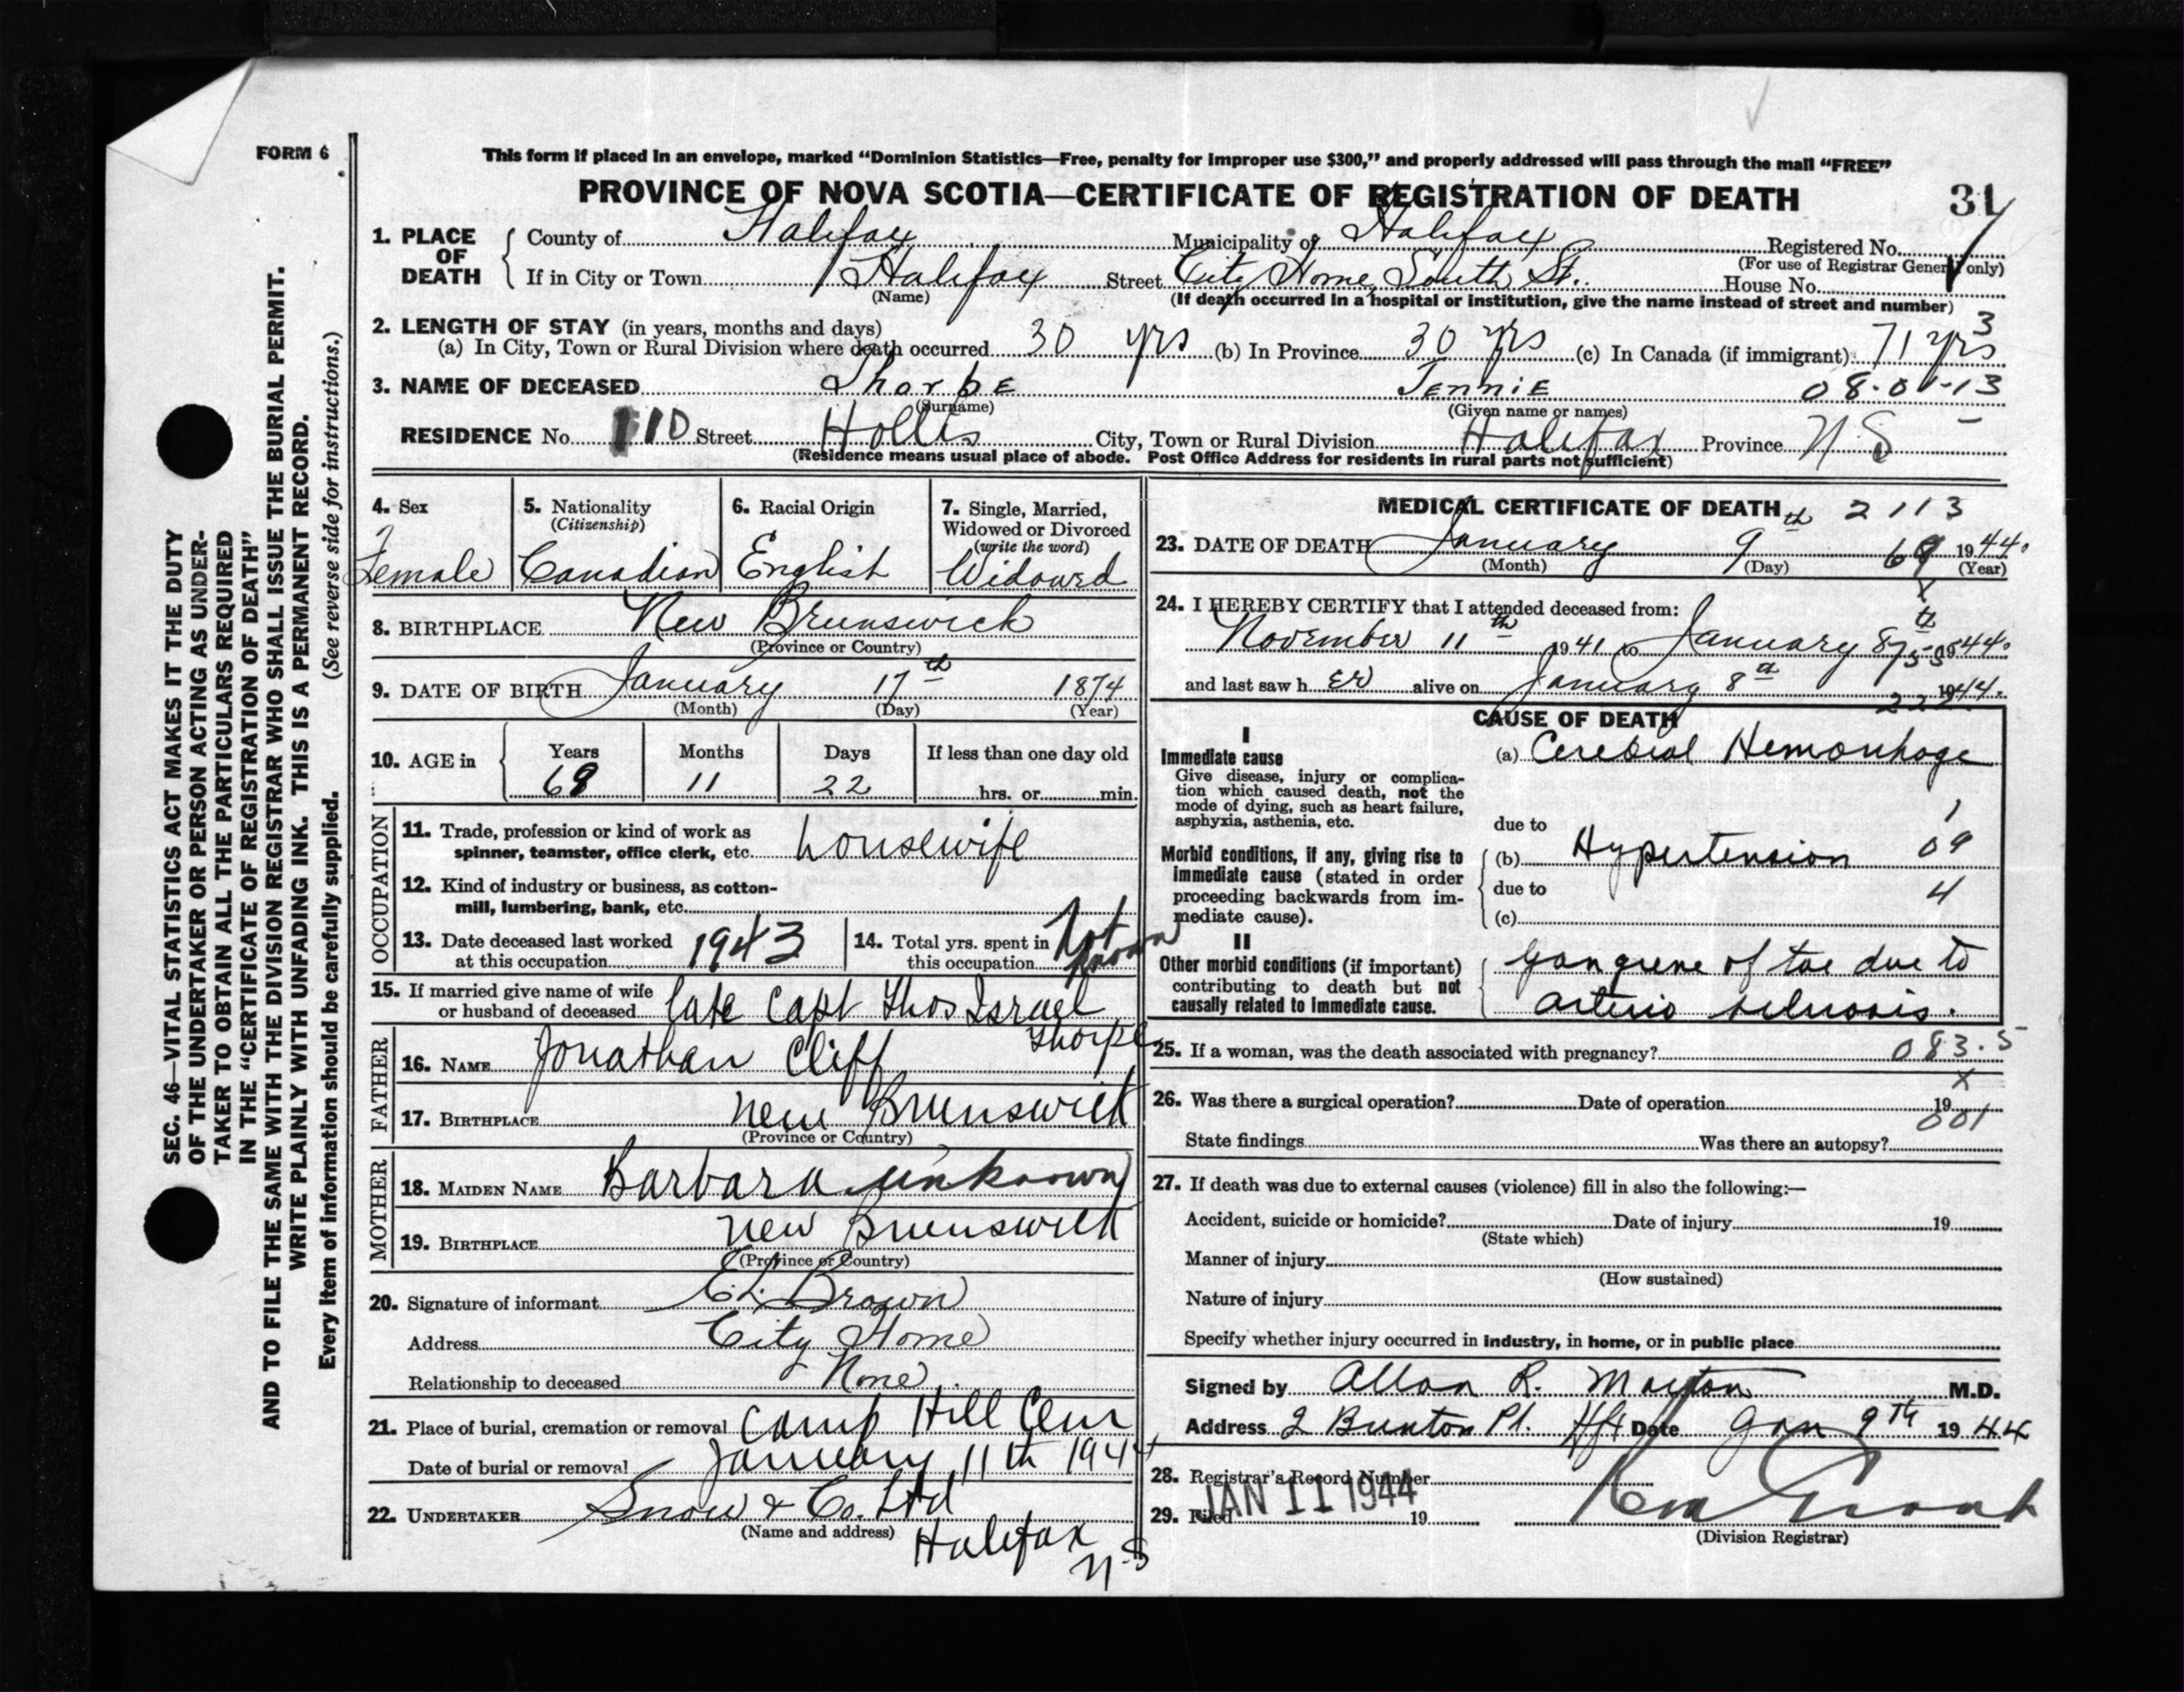 FORM 6
This form if placed in an envelope, marked “Dominion Statistics—Free, penalty for improper use $300,” and properly addressed will pass through the mail “FREE”
PROVINCE OF NOVA SCOTIA—CERTIFICATE OF REGISTRATION OF DEATH 31
1. PLACE OF DEATH County of Halifax Municipality of Halifax Registered No.
(For use of Registrar General only)
If in City or Town Halifax Street City Home, South St. House No.
(Name) (If death occurred in a hospital or institution, give the name instead of street and number)
2. LENGTH OF STAY (in years, months and days) 3
(a) In City, Town or Rural Division where death occurred 30 yrs (b) In Province 30 yrs (c) In Canada (if immigrant) 71 yrs
3. NAME OF DECEASED Thorpe Jennie 08-01-13
(Surname) (Given name or names)
RESIDENCE No. 110 Street Hollis City, Town or Rural Division Halifax Province N.S
(Residence means usual place of abode. Post Office Address for residents in rural parts not sufficient)
4. Sex 5. Nationality 6. Racial Origin 7. Single, Married,
(Citizenship) Widowed or Divorced
(write the word)
2
Female Canadian English Widowed
8. BIRTHPLACE New Brunswick
(Province or Country)
9. DATE OF BIRTH January 17th 1874
(Month) (Day) (Year)
10. AGE in Years Months Days If less than one day old
69 11 22 hrs. or min.
OCCUPATION
11. Trade, profession or kind of work as
spinner, teamster, office clerk, etc. housewife
12. Kind of industry or business, as cotton-
mill, lumbering, bank, etc.
13. Date deceased last worked
at this occupation 1943
14. Total yrs. spent in
this occupation Not known
15. If married give name of wife
or husband of deceased late Capt Thos Israel
Thorpe
FATHER
16. NAME Jonathan Cliff
17. BIRTHPLACE New Brunswick
(Province or Country)
MOTHER
18. MAIDEN NAME Barbara unknown
19. BIRTHPLACE New Brunswick
(Province or Country)
20. Signature of informant E.L. Brown
Address City Home
Relationship to deceased None
21. Place of burial, cremation or removal Camp Hill Cem
Date of burial or removal January 11th 1944
22. UNDERTAKER Snow & Co. Ltd
(Name and address) Halifax
N.S
MEDICAL CERTIFICATE OF DEATH 2113
23. DATE OF DEATH January 9th 69 1944.
(Month) (Day) (Year)
24. I HEREBY CERTIFY that I attended deceased from:
November 11th 1941 to January 8th 1944.
and last saw her alive on January 8th 1944.
CAUSE OF DEATH
I
Immediate cause (a) Cerebral Hemorrhage
Give disease, injury or complica-
tion which caused death, not the
mode of dying, such as heart failure,
asphyxia, asthenia, etc. due to 1
Morbid conditions, if any, giving rise to (b) Hypertension 09
immediate cause (stated in order due to 4
proceeding backwards from im-
mediate cause). (c)
II
Other morbid conditions (if important) gangrene of toe due to
contributing to death but not
causally related to immediate cause. arterio sclerosis.
25. If a woman, was the death associated with pregnancy? 083.5
x
26. Was there a surgical operation? Date of operation 19
001
State findings Was there an autopsy?
27. If death was due to external causes (violence) fill in also the following:—
Accident, suicide or homicide? Date of injury 19
(State which)
Manner of injury
(How sustained)
Nature of injury
Specify whether injury occurred in industry, in home, or in public place
Signed by Allan R. Morton M.D.
Address 2 Pl. Hfx Date Jan 9TH 1944
28. Registrar's Record Number
29. Filed JAN 11 1944 19
(Division Registrar)
SEC. 46—VITAL STATISTICS ACT MAKES IT THE DUTY
OF THE UNDERTAKER OR PERSON ACTING AS UNDER-
TAKER TO OBTAIN ALL THE PARTICULARS REQUIRED
IN THE “CERTIFICATE OF REGISTRATION OF DEATH”
AND TO FILE THE SAME WITH THE DIVISION REGISTRAR WHO SHALL ISSUE THE BURIAL PERMIT.
WRITE PLAINLY WITH UNFADING INK. THIS IS A PERMANENT RECORD.
Every item of information should be carefully supplied. (See reverse side for instructions.)